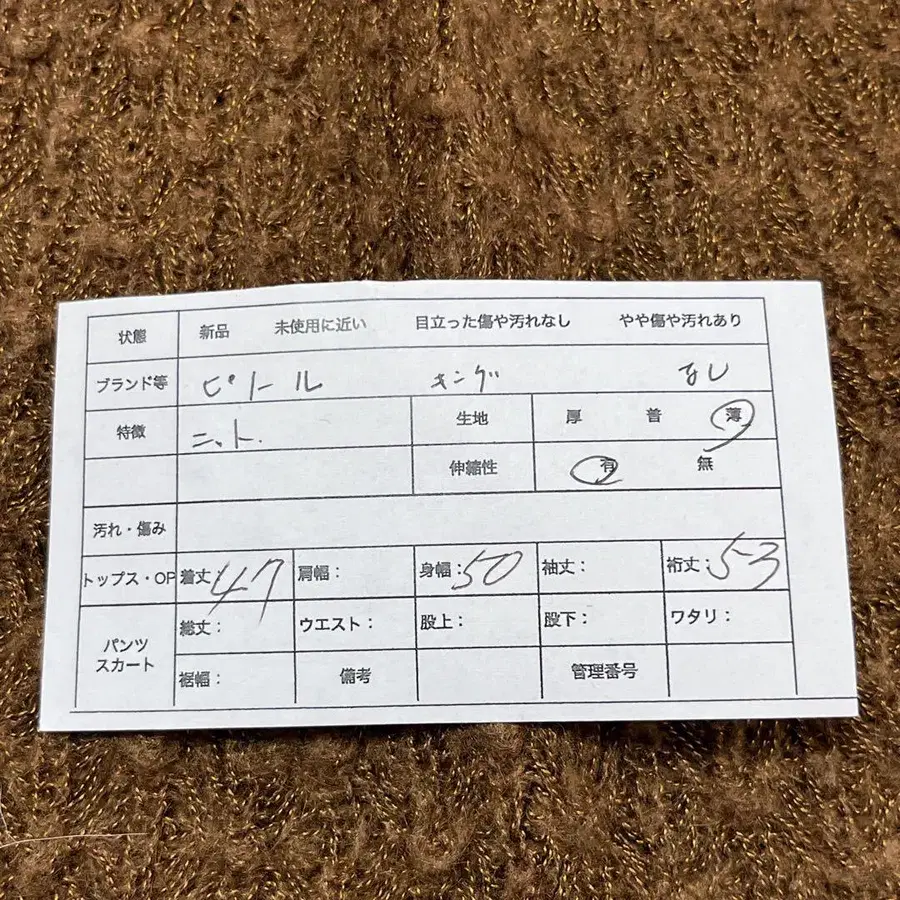 状態 新品 未使用に近い 目立った傷や汚れなし やや傷や汚れあり
ブランド等 ピトール キング なし
特徴 ニット. 生地 厚 普 薄
伸縮性 有 無
汚れ・傷み
トップス・OP 着丈：47 肩幅： 身幅：50 袖丈： 裄丈：53
パンツ スカート 総丈： ウエスト： 股上： 股下： ワタリ：
裾幅： 備考 管理番号